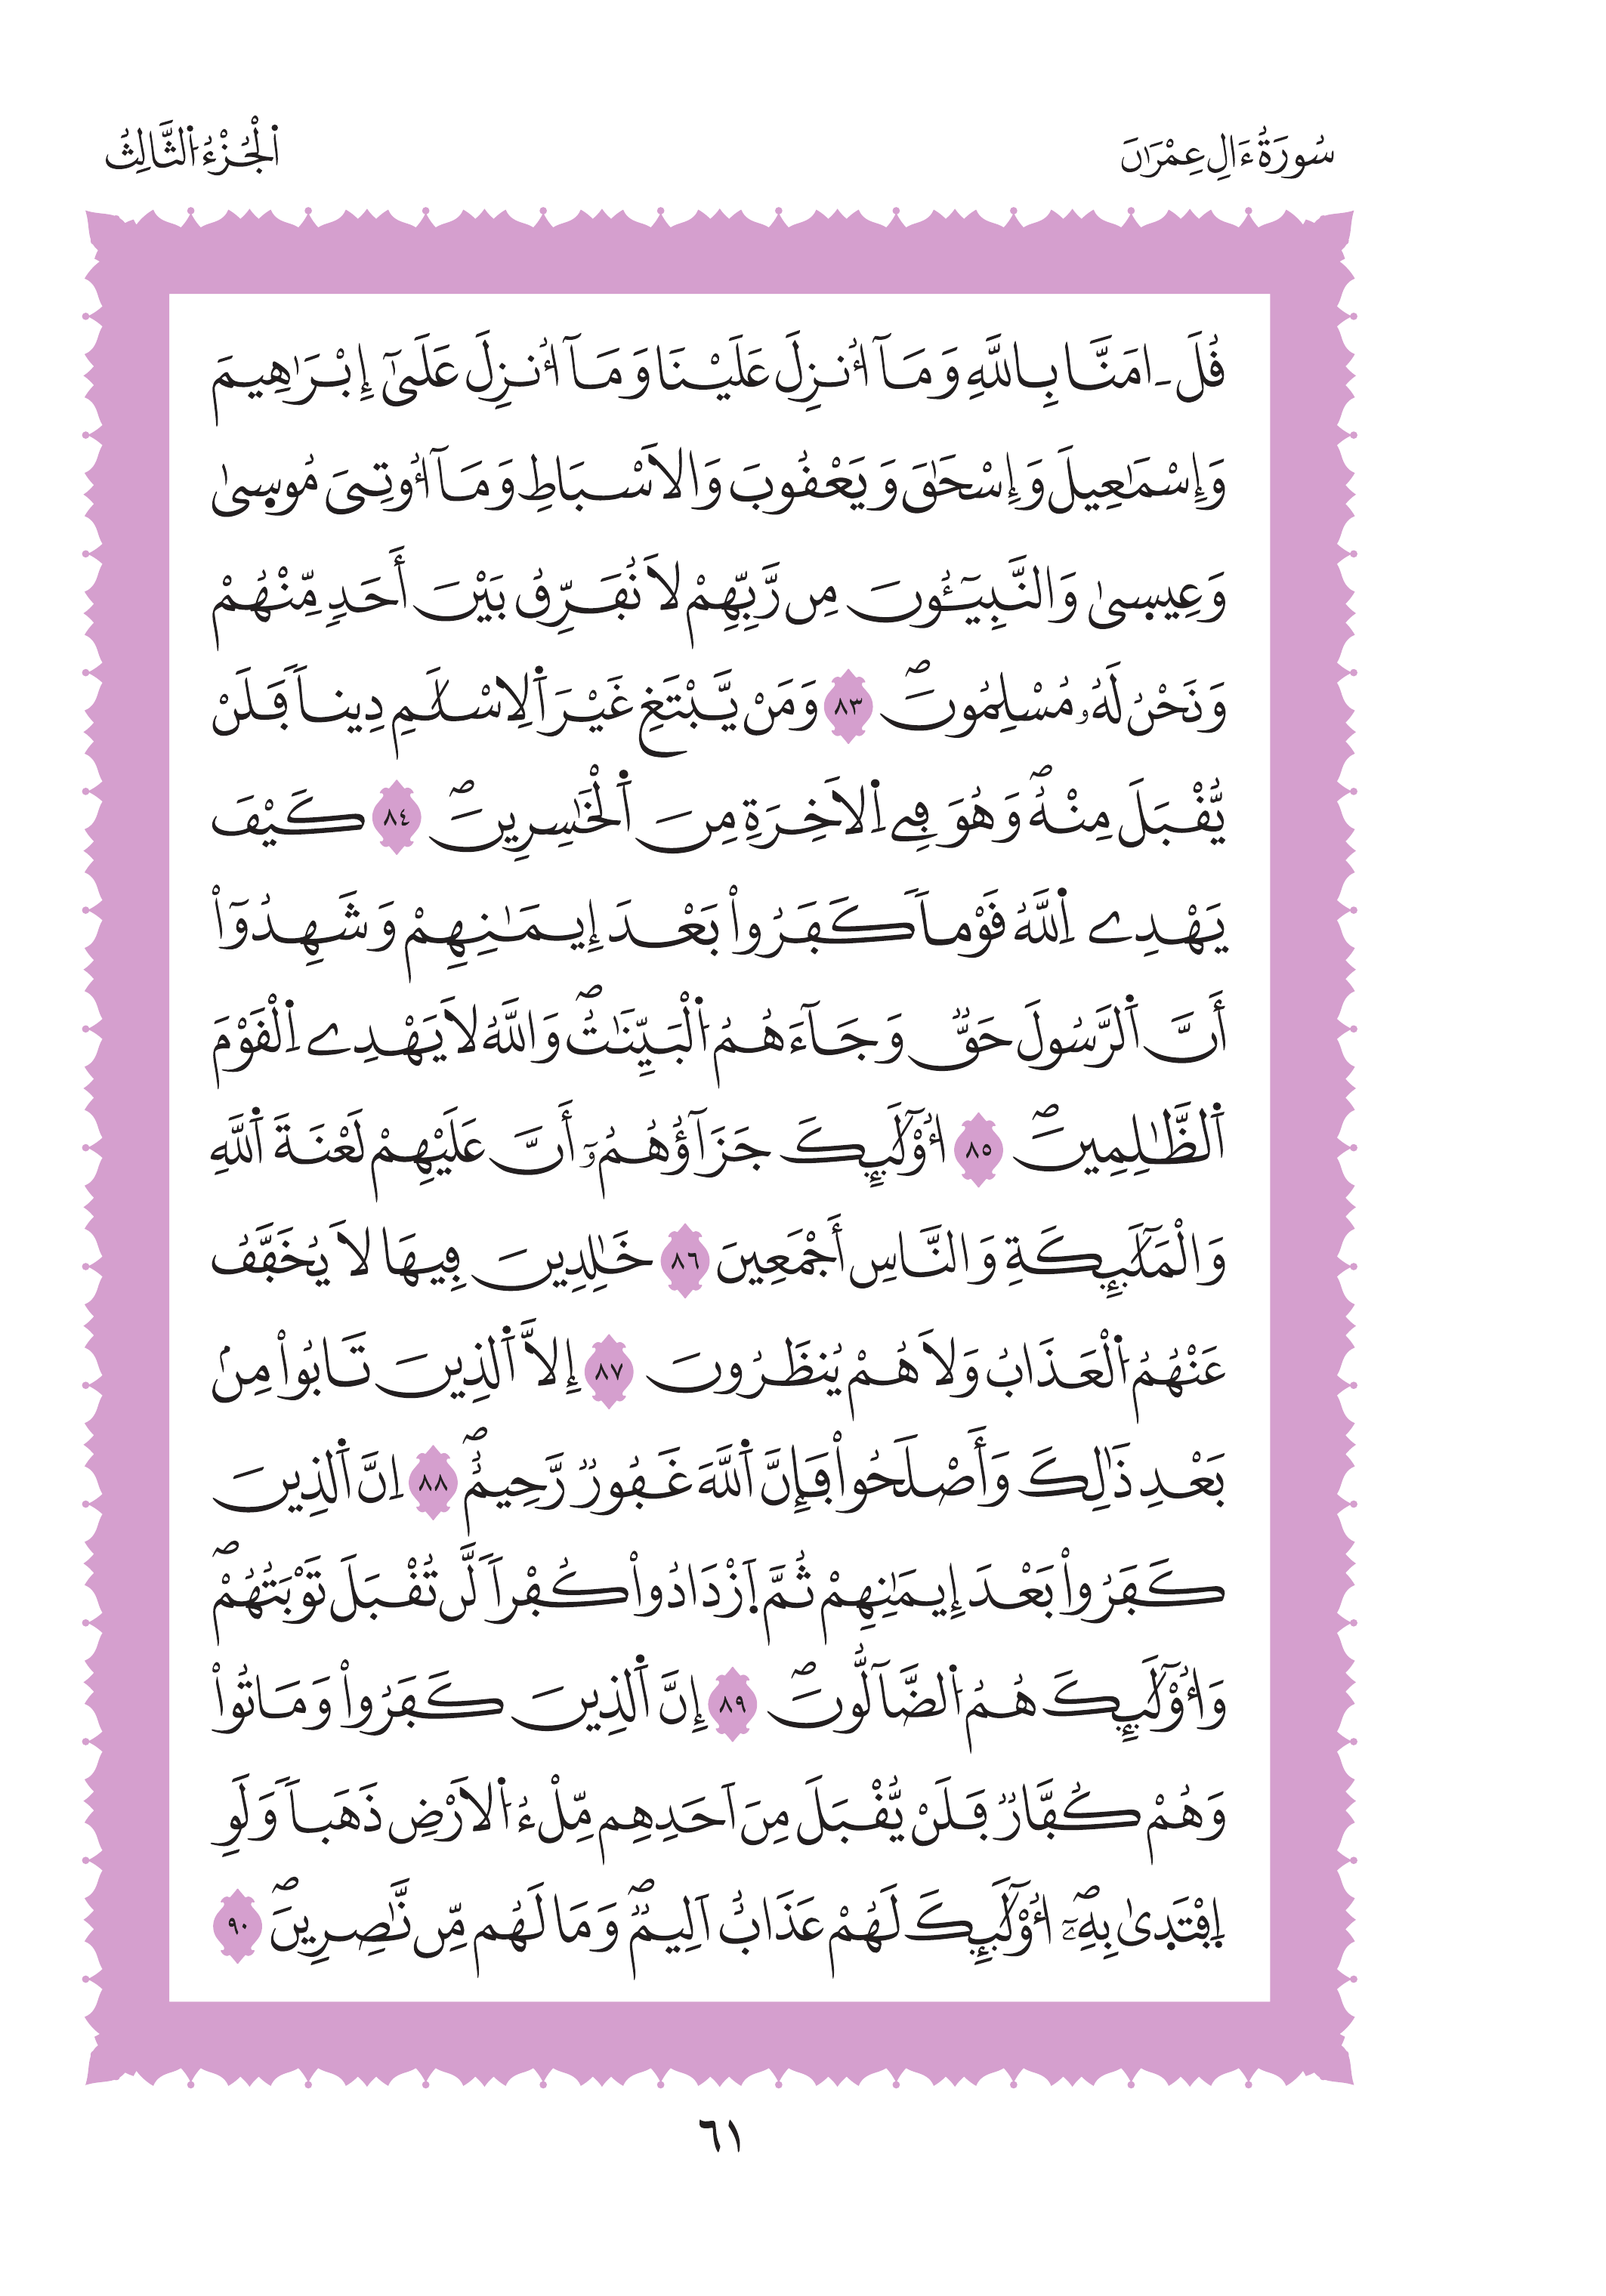 سُورَةُ ءَالِ عِمْرَٰنَ
اَ۬لْجُزْءُ اُ۬لثَّالِثُ
قُلَ ـ امَنَّا بِاللَّهِ وَمَآ أُنزِلَ عَلَيْنَا وَمَآ أُنزِلَ عَلَىٰٓ إِبْرَٰهِيمَ
وَإِسْمَٰعِيلَ وَإِسْحَٰقَ وَيَعْقُوبَ وَالَاسْبَاطِ وَمَآ أُوتِيَ مُوسۭىٰ
وَعِيسۭىٰ وَالنَّبِيٓـُٔونَ مِن رَّبِّهِمْ لَا نُفَرِّقُ بَيْنَ أَحَدٖ مِّنْهُمْ
وَنَحْنُ لَهُۥ مُسْلِمُونَۖ ٨٣ وَمَنْ يَّبْتَغِ غَيْرَ اَ۬لِاسْلَٰمِ دِيناٗ فَلَنْ
يُّقْبَلَ مِنْهُۖ وَهُوَ فِے اِ۬لَاخِرَةِ مِنَ اَ۬لْخَٰسِرِينَۖ ٨٤ كَيْفَ
يَهْدِے اِ۬للَّهُ قَوْماٗ كَفَرُواْ بَعْدَ إِيمَٰنِهِمْ وَشَهِدُوٓاْ
أَنَّ اَ۬لرَّسُولَ حَقّٞ وَجَآءَهُمُ اُ۬لْبَيِّنَٰتُۖ وَاللَّهُ لَا يَهْدِے اِ۬لْقَوْمَ
اَ۬لظَّٰلِمِينَۖ ٨٥ أُوْلَٰٓئِكَ جَزَآؤُهُمُۥٓ أَنَّ عَلَيْهِمْ لَعْنَةَ اَ۬للَّهِ
وَالْمَلَٰٓئِكَةِ وَالنَّاسِ أَجْمَعِينَ ٨٦ خَٰلِدِينَ فِيهَا لَا يُخَفَّفُ
عَنْهُمُ اُ۬لْعَذَابُ وَلَا هُمْ يُنظَرُونَ ٨٧ إِلَّا اَ۬لذِينَ تَابُواْ مِنۢ
بَعْدِ ذَٰلِكَ وَأَصْلَحُواْ فَإِنَّ اَ۬للَّهَ غَفُورٞ رَّحِيمٌۖ ٨٨ اِنَّ اَ۬لذِينَ
كَفَرُواْ بَعْدَ إِيمَٰنِهِمْ ثُمَّ اَ۪زْدَادُواْ كُفْراٗ لَّن تُقْبَلَ تَوْبَتُهُمْۖ
وَأُوْلَٰٓئِكَ هُمُ اُ۬لضَّآلُّونَۖ ٨٩ إِنَّ اَ۬لذِينَ كَفَرُواْ وَمَاتُواْ
وَهُمْ كُفَّارٞ فَلَنْ يُّقْبَلَ مِنَ اَحَدِهِم مِّلْءُ اُ۬لَارْضِ ذَهَباٗ وَلَوِ
اِ۪فْتَدۭىٰ بِهِۦٓۖ أُوْلَٰٓئِكَ لَهُمْ عَذَابٌ اَلِيمٞۖ وَمَا لَهُم مِّن نَّٰصِرِينَۖ ٩٠
٦١